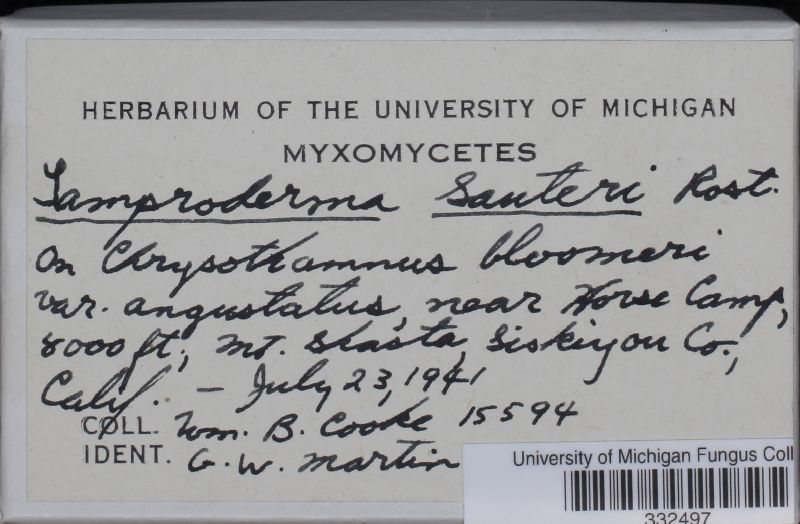 HERBARIUM OF THE UNIVERSITY OF MICHIGAN
MYXOMYCETES
Lamproderma Sauteri Rost.
on Chrysothamnus bloomeri
var. angustatus, near Horse Camp,
8000 ft, Mt. Shasta, Siskiyou Co.,
Calif. - July 23, 1941
COLL. Wm. B. Cooke 15594
IDENT. G. W. Martin
University of Michigan Fungus Coll
332497